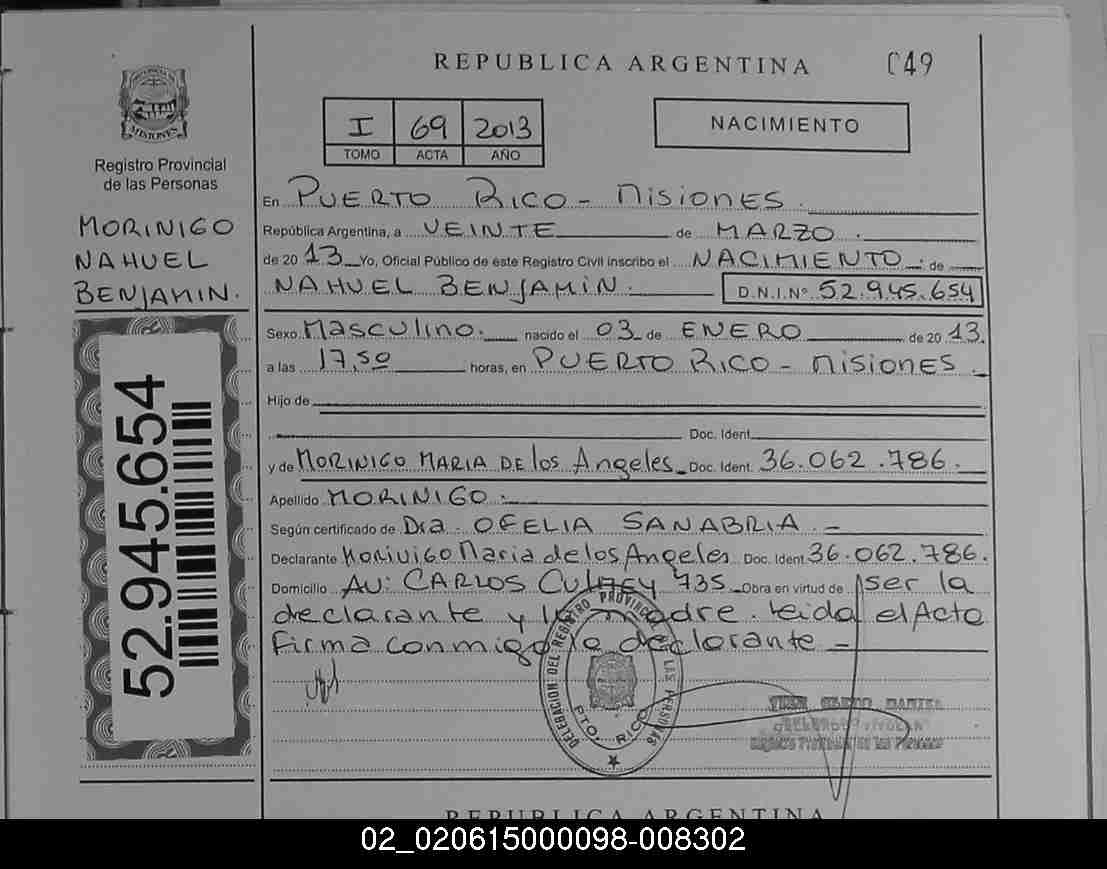 REPUBLICA ARGENTINA
C49
MISIONES
Registro Provincial
de las Personas
MORINIGO
NAHUEL
BENJAMIN.
52.945.654
I 69 2013
TOMO ACTA AÑO
NACIMIENTO
En PUERTO RICO - MISIONES.
República Argentina, a VEINTE de MARZO.
de 2013 Yo, Oficial Público de este Registro Civil inscribo el NACIMIENTO. de
NAHUEL BENJAMIN. D.N.I.N° 52.945.654
Sexo Masculino. nacido el 03 de ENERO de 2013.
a las 17,50 horas, en PUERTO RICO - MISIONES.
Hijo de
Doc. Ident.
y de MORINIGO MARIA DE los Angeles Doc. Ident. 36.062.786.
Apellido MORINIGO.
Según certificado de Dra. OFELIA SANABRIA. -
Declarante Morinigo Maria de los Angeles Doc. Ident 36.062.786.
Domicilio AV: CARLOS CULMEY 735. Obra en virtud de ser la
declarante y la madre. leida el Acta
Firma conmigo la declarante -
DELEGACION DEL REGISTRO PROVINCIAL DE LAS PERSONAS
PTO. RICO
Registro Provincial de las Personas
REPUBLICA ARGENTINA
02_020615000098-008302